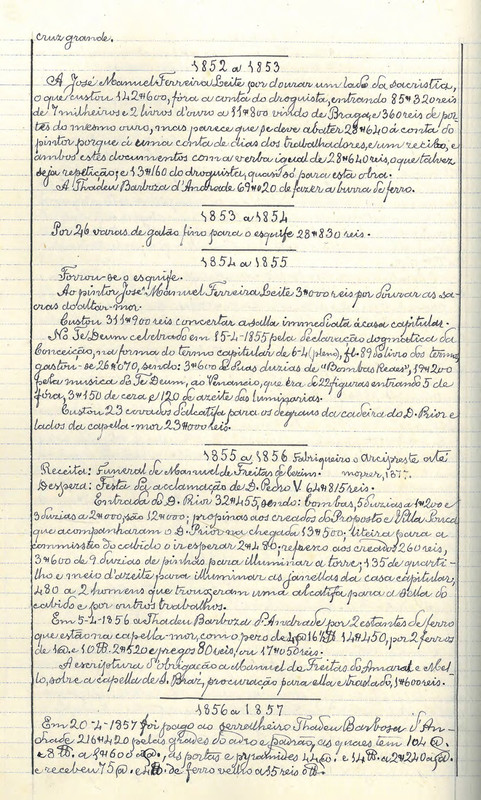 cruz grande.
1852 a 1853
A José Manuel Ferreira Leite por dourar um lado da sacristia,
o que custou 142#600, fóra a conta do droguista, entrando 85#320 reis
de 7 milheiros e 2 livros d'ouro a 11#800 vindo de Braga e 360 reis de por-
tes do mesmo ouro, mas parece que se deve abater 28#640 á conta do
pintor porque á uma conta de dias dos trabalhadores, e um recibo, e
ambos estes documentos com a verba igual de 28#640 reis, o que talvez
seja repetição; e 13#160 do droguista, quan só para esta obra.
A Thadeu Barboza d'Andrade 69#20 de fazer a burra de ferro.
1853 a 1854
Por 26 varas de galão fino para o esquife 28#830 reis.
1854 a 1855
Forrou-se o esquife.
Ao pintor José Manuel Ferreira Leite 3#000 reis por dourar as sa-
cras do altar-mor.
Custou 311#900 reis concertar a salla immediata á casa capitular.
No Te Deum celebrado em 15-4-1855 pela declaração dogmatica da
Conceição, na forma do termo capitular de 6-4 (pleno), fl. 89 do livro dos termos,
gastou-se 26#070, sendo: 3#600 de duas duzias de "Bombas Reaes", 19#200
pela musica do Te Deum, ao Venancio, que era de 22 figuras entrando 5 de
fóra, 3#150 de cera e 120 de azeite das luminarias.
Custou 23 covados d'alcatifa para os degraus da cadeira do D. Prior e
lados da capella-mor 23#000 reis.
1855 a 1856 Fabriqueiro o arcipreste até
Receita: Funeral de Manuel de Freitas morrer, 187
Despeza: Festa da acclamação de D. Pedro V 64#815 reis.
Entrada do D. Prior 32#455, sendo: bombas, 5 duzias a 1#200 e
3 duzias a 2#000, são 12#000; propinas aos creados do Proposto e Villa Pouca
que acompanharam o D. Prior na chegada 13#500; liteira para a
commissão do cabido o ir esperar 2#480; refresco aos creados 260 reis,
3#600 de 9 duzias de pinhas para illuminar a torre; 135 de quarti-
lho e meio d'azeite para illuminar as janellas da casa capitular,
480 a 2 homens que trouxeram uma alcatifa para a salla do
cabido e por outros trabalhos.
Em 5-4-1856 a Thadeu Barboza d'Andrade por 2 estantes de ferro
que estão na capella-mor, com o pezo de 4@ 16 ℔ 14#450, por 2 ferros
de 1@ e 10 ℔ 2#520 e pregos 80 reis, ou 17#050 reis.
A escriptura d'obrigação a Manuel de Freitas do Amaral e Mel-
lo, sobre a capella de S. Braz, procuração para ella e traslado, 1#600 reis.
1856 a 1857
Em 20-4-1857 foi pago ao serralheiro Thadeu Barbosa d'An-
drade 216#420 pelas grades do adro e padrão, as quaes têm 104 @.
e 8 ℔. a 1#600 a @., as portas e pyramides 44@. e 14 ℔. a 2#240 a @.
e recebeu 75 @. e ℔. de ferro velho a 15 reis o ℔.